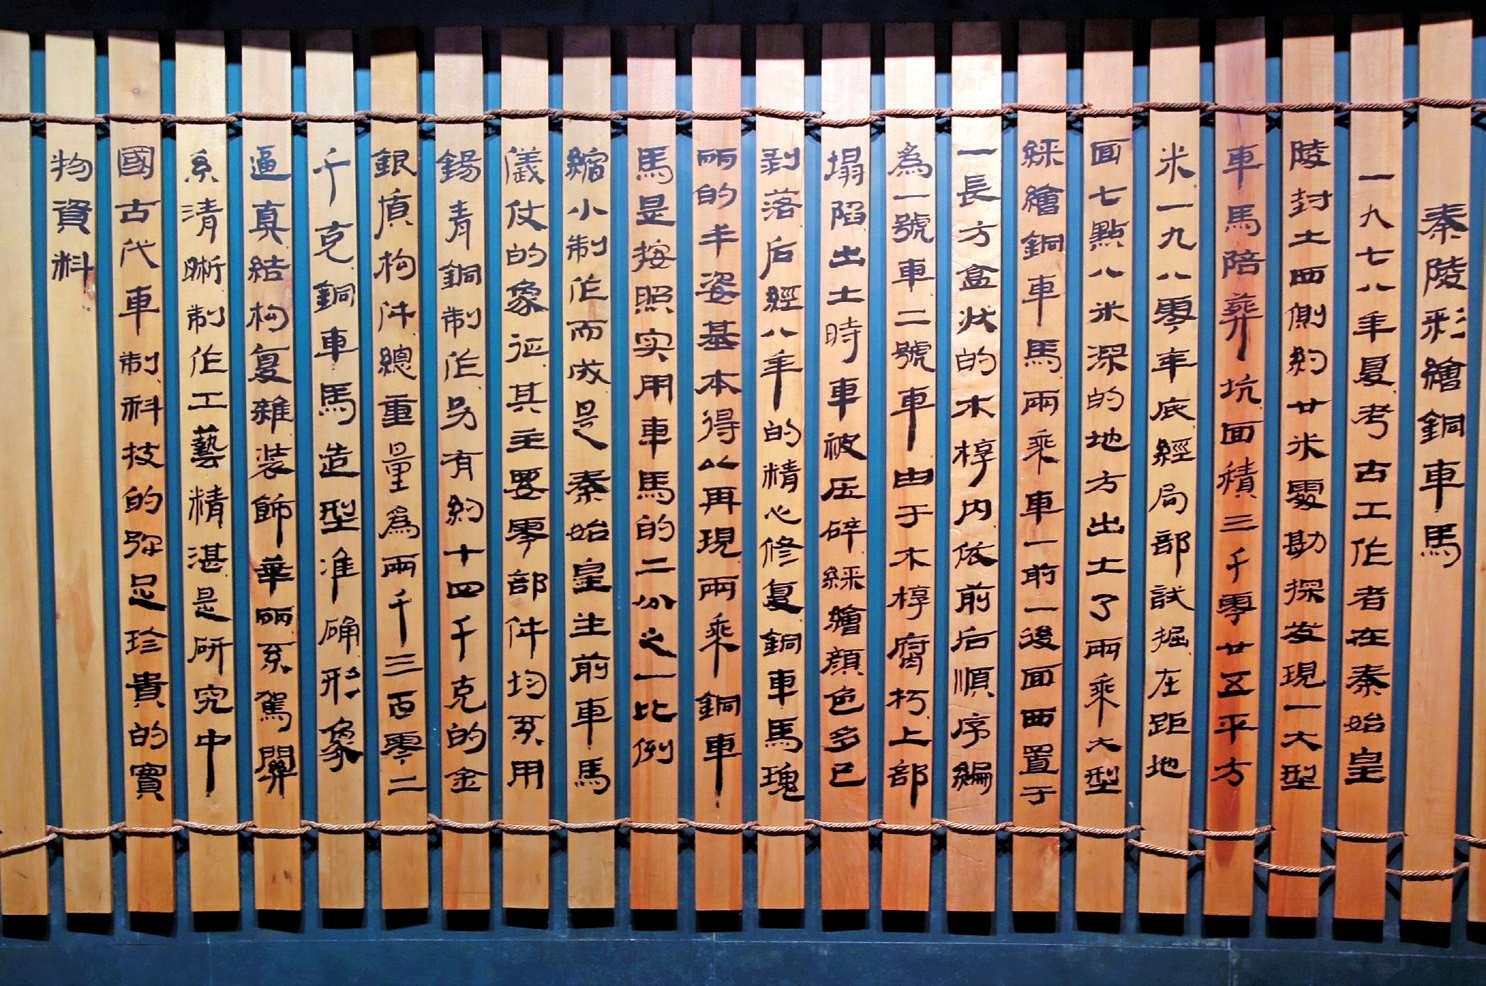 秦陵彩繪銅車馬
一九七八年夏考古工作者在秦始皇
陵封土西側約廿米處勘探发現一大型
車馬陪葬坑面積三千零廿五平方
米一九八零年底經局部試掘在距地
面七點八米深的地方出土了兩乘大型
綵繪銅車馬兩乘車一前一後面西置于
一長方盒狀的木椁内依前后順序編
為一號車二號車由于木椁腐朽上部
塌陷出土時車被压碎綵繪顏色多已
剥落后經八年的精心修复銅車馬瑰
丽的丰姿基本得以再現兩乘銅車
馬是按照实用車馬的二分之一比例
縮小制作而成是秦始皇生前車馬
儀仗的象征其主要零部件均系用
錫青銅制作另有約十四千克的金
銀質构件總重量為兩千三百零二
千克銅車馬造型准确形象
逼真結构复雜装飾華丽系駕關
系清晰制作工藝精湛是研究中
國古代車制科技的弥足珍貴的實
物資料